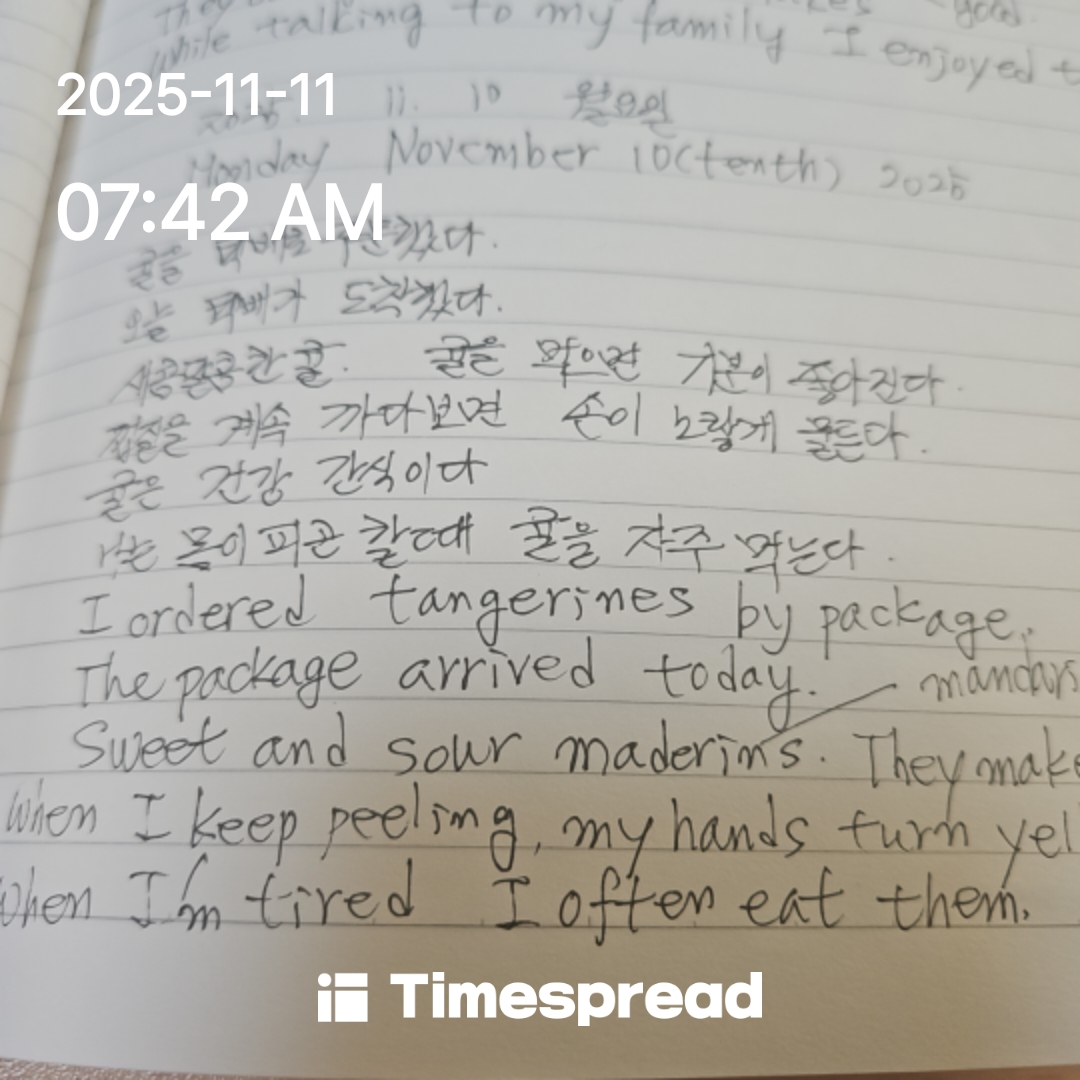 They
good.
while talking to my family I enjoyed t
2025-11-11
2025. 11. 10 월요일
Monday November 10(tenth) 2025
07:42 AM
귤을 택배로 주문했다.
오늘 택배가 도착했다.
새콤달콤한 귤. 귤을 먹으면 기분이 좋아진다.
껍질을 계속 까다보면 손이 노랗게 물든다.
귤은 건강 간식이다
나는 몸이 피곤할때 귤을 자주 먹는다.
I ordered tangerines by package.
The package arrived today. mandars
Sweet and sour maderins. They make
When I keep peeling, my hands turn yel
When I'm tired I often eat them.
Timespread